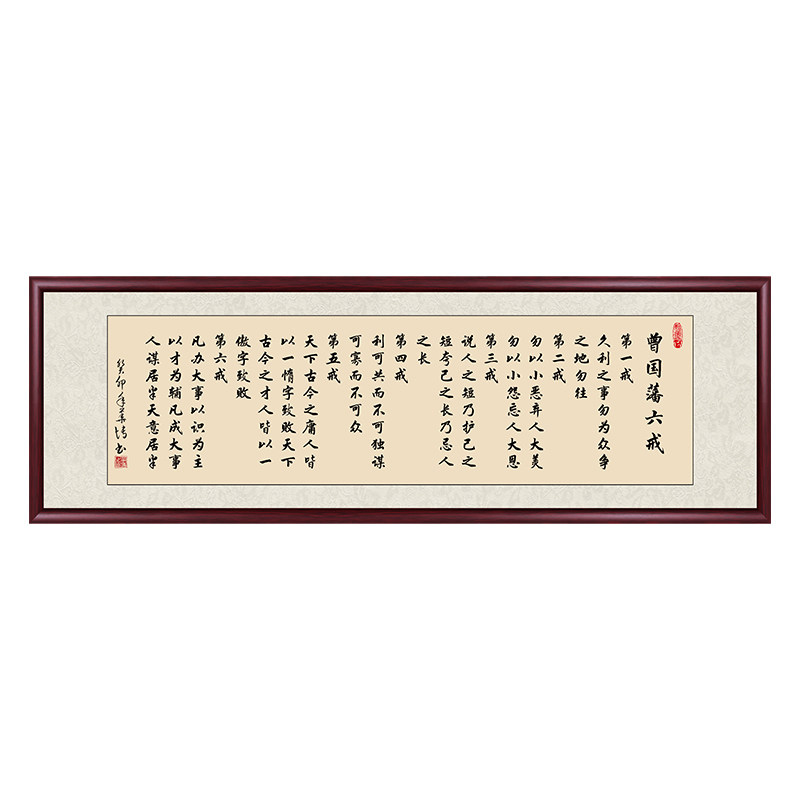 曾国藩六戒
第一戒
久利之事勿为众争
之地勿往
第二戒
勿以小恶弃人大美
勿以小怨忘人大恩
第三戒
说人之短乃护己之
短夸己之长乃忌人
之长
第四戒
利可共而不可独谋
可寡而不可众
第五戒
天下古今之庸人皆
以一惰字致败天下
古今之才人皆以一
傲字致败
第六戒
凡办大事以识为主
以才为辅凡成大事
人谋居半天意居半
癸卯年 书